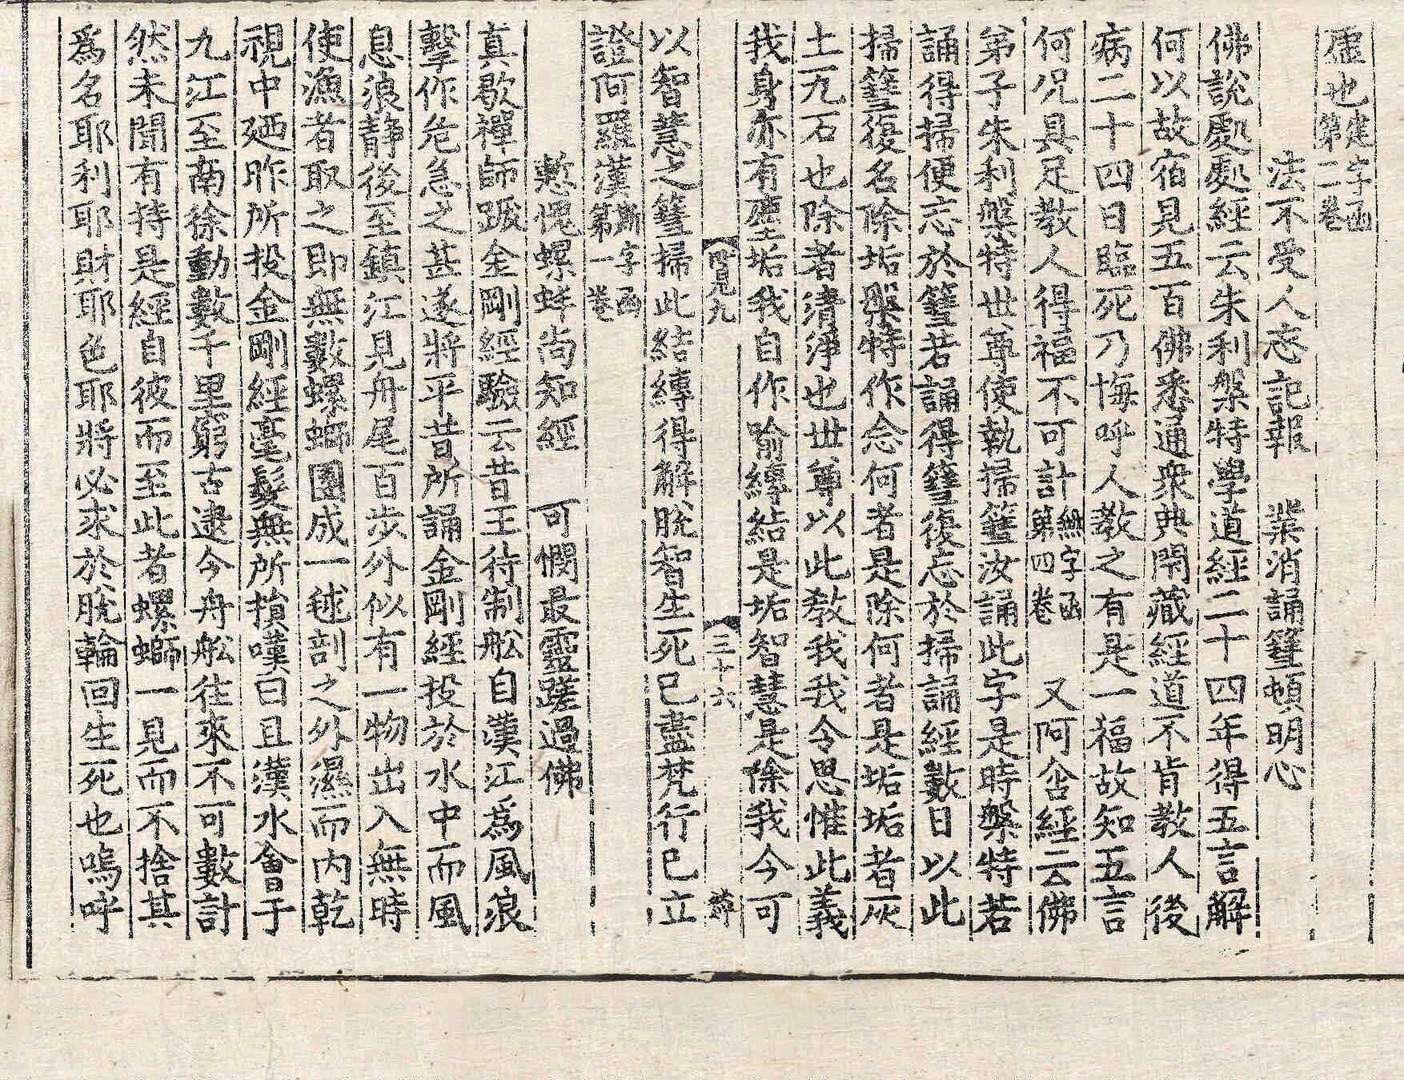 虛也建字函第二卷
法不受人忞記報　業消誦篲頓明心
佛說處處經云朱利槃特學道經二十四年得五言解
何以故宿見五百佛悉通衆典閉藏經道不肯教人後
病二十四日臨死乃悔呼人教之有是一福故知五言
何况具足教人得福不可計無字函第四卷　又阿含經云佛
弟子朱利槃特世尊使執掃篲汝誦此字是時槃特若
誦得掃便忘於篲若誦得篲復忘於掃誦經數日以此
掃篲復名除垢槃特作念何者是除何者是垢垢者灰
土瓦石也除者清淨也世尊以此教我我今思惟此義
我身亦有塵垢我自作喻縛結是垢智慧是除我今可
四覓九　三十六
以智慧之篲掃此結縛得解脫智生死已盡梵行已立
證阿羅漢斯字函第一卷
慙愧螺蚌尚知經　可憫最靈蹉過佛
真歇禪師跋金剛經驗云昔王待制舩自漢江爲風浪
擊作危急之甚遂將平昔所誦金剛經投於水中而風
息浪静後至鎮江見舟尾百步外似有一物出入無時
使漁者取之即無數螺螄團成一毬剖之外濕而内乾
視中廼昨所投金剛經毫髮無所損嘆曰且漢水會于
九江至南徐動數千里窮古逮今舟舩往來不可數計
然未聞有持是經自彼而至此者螺螄一見而不捨其
爲名耶利耶財耶色耶將必求於脫輪回生死也嗚呼